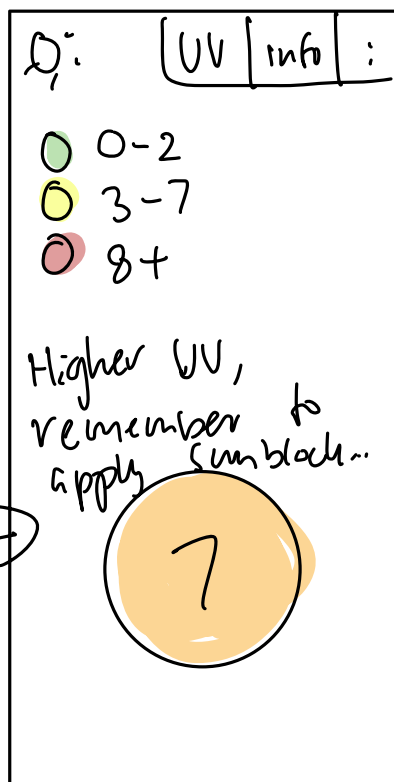 UV info :
0-2
3-7
8+
Higher UV,
remember to
apply sunblock...
7